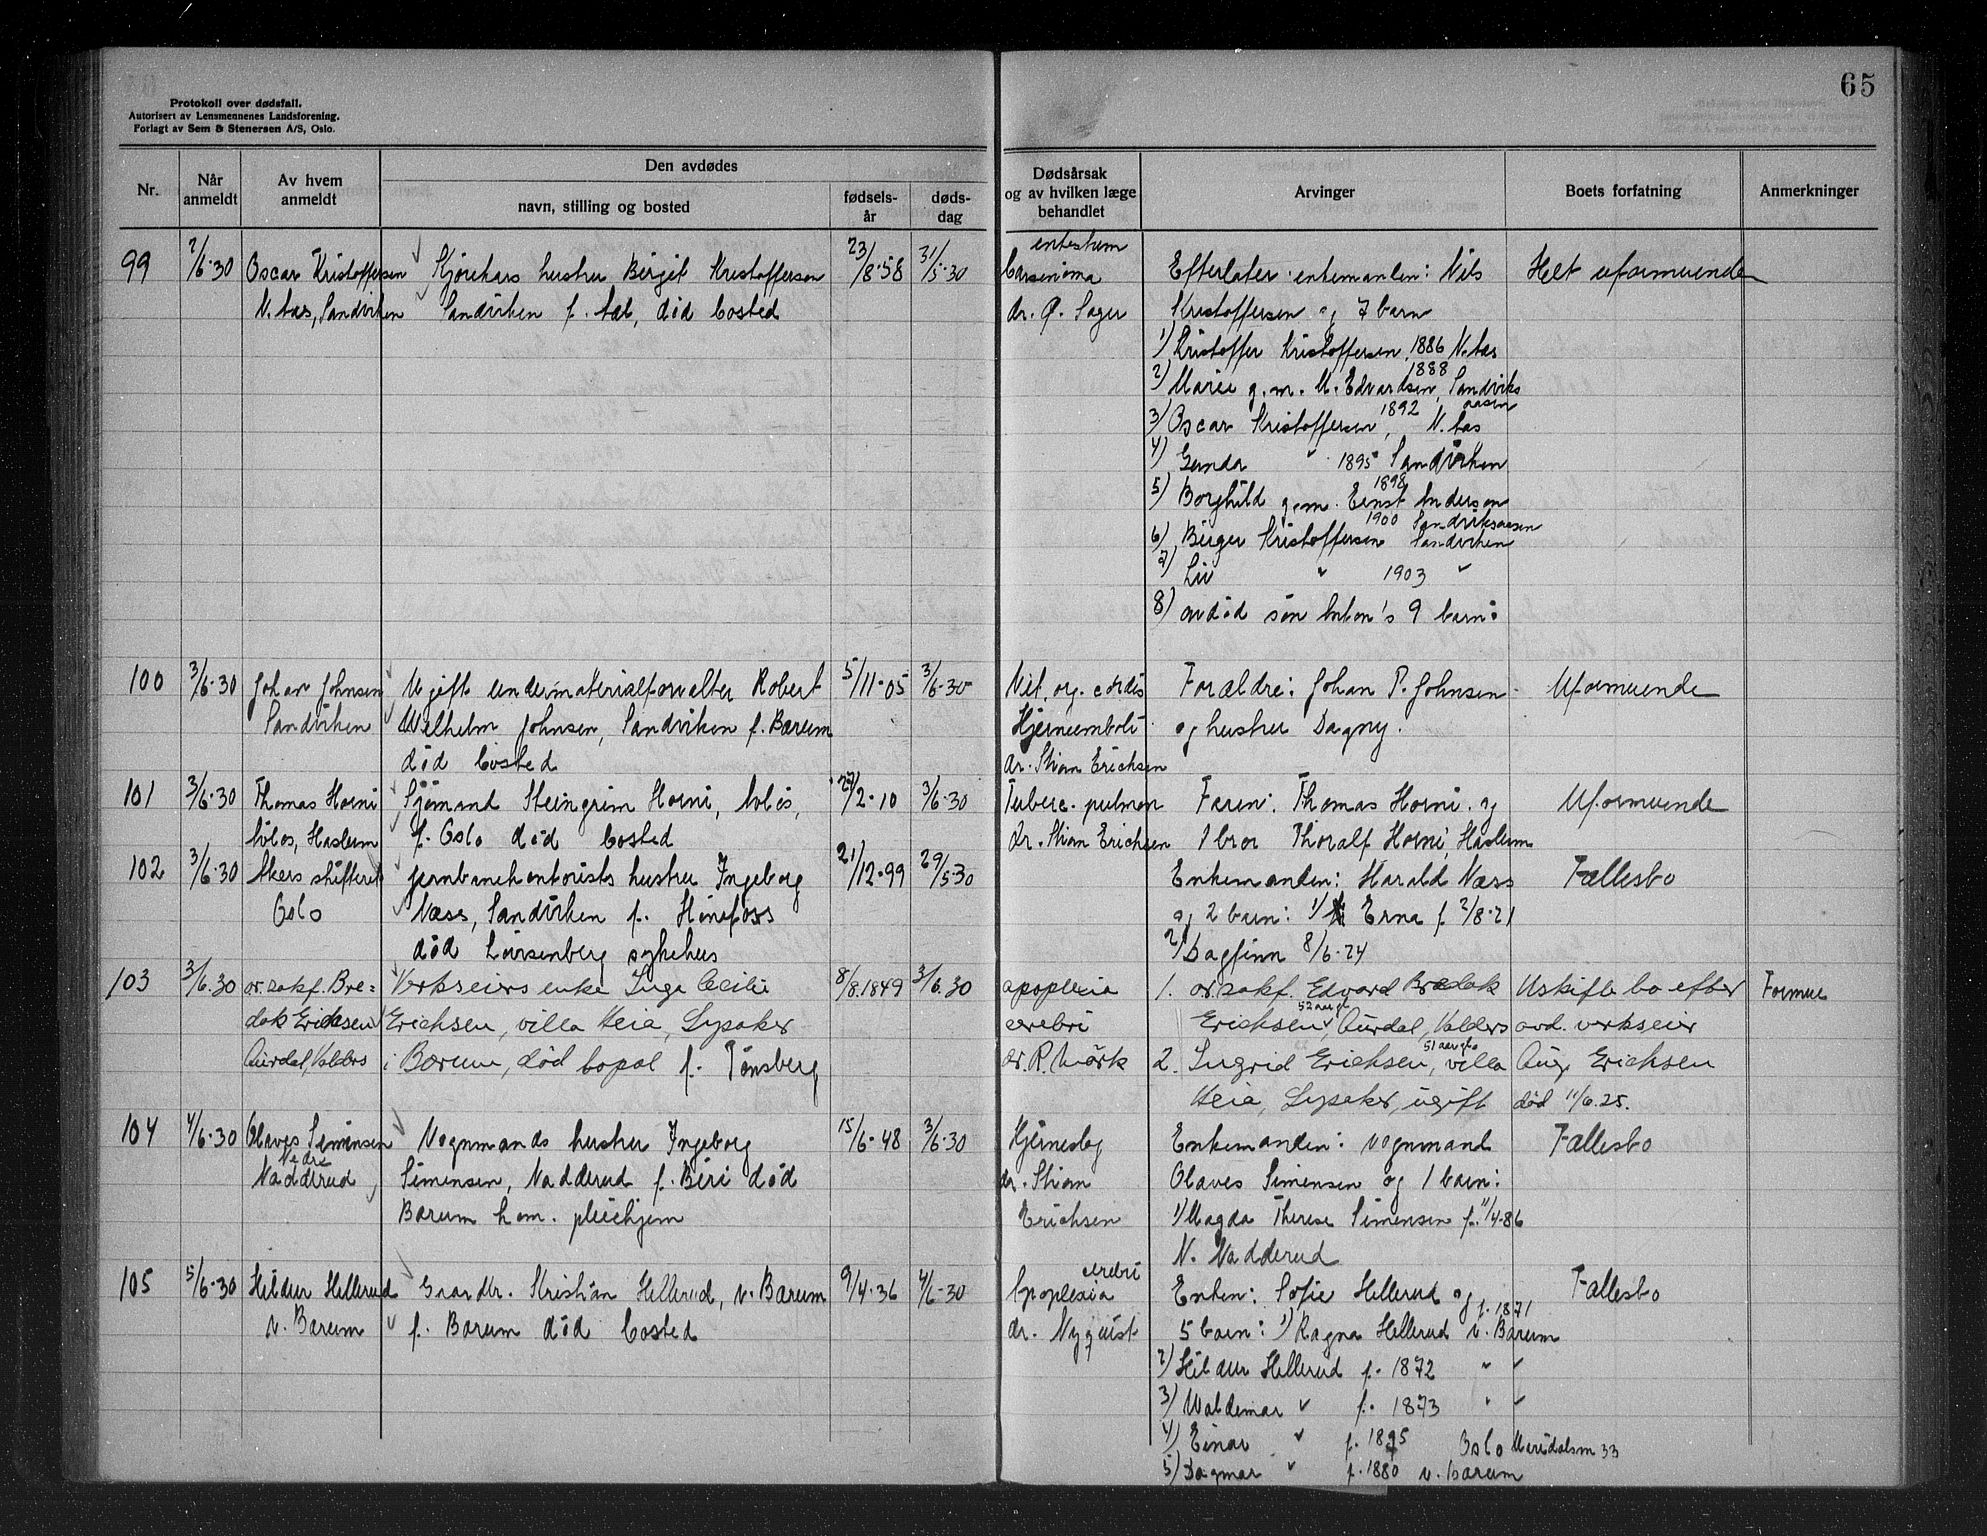 65
Protokoll over dødsfall.
Autorisert av Lensmennenes Landsforening.
Forlagt av Sem & Stenersen A/S, Oslo.
Nr.
Når anmeldt
Av hvem anmeldt
Den avdødes
navn, stilling og bosted
fødselsår
dødsdag
Dødsårsak og av hvilken læge behandlet
Arvinger
Boets forfatning
Anmerkninger
99 2/6-30 Oscar Kristoffersen hustru Birgit Kristoffersen 23/8-58 31/5-30 Carsinoma Efterlater enkemanden: Nils Helt uformuende
N. Aas, Sandviken Sandviken f. Aal, död bosted dr. P. Sager Kristoffersen og 7 barn
1) Kristoffer Kristoffersen, 1886 N. Aas
2) Marie g.m. M. Edvardsen, 1888 Sandviksaasen
3) Oscar Kristoffersen, 1892 N. Aas
4) Gunda " 1895 Sandviken
5) Borghild g.m. Ernst Anderson 1898 Sandviksaasen
6) Birger Kristoffersen 1900 Sandviken
7) Liv " 1903 "
8) avdöd sön Anton's 9 barn:
100 3/6-30 Johan Johnsen Ugift undermaterialforvalter Robert 5/11-05 3/6-30 Vit. org. cordis Forældre: Johan P. Johnsen Uformuende
Sandviken Wilhelm Johnsen, Sandviken f. Bærum Hjerneemboli og hustru Dagny.
död bosted dr. Stian Erichsen
101 3/6-30 Thomas Horni Sjömand Steingrim Horni, Avlös, 27/2-10 3/6-30 Tuberc. pulmon Faren: Thomas Horni og Uformuende
Avlös, Haslum f. Oslo död bosted dr. Stian Erichsen 1 bror Thoralf Horni, Haslum
102 3/6-30 Akers skifteret jernbanekontorists hustru Ingeborg 21/12-99 29/5-30 Enkemanden: Harald Næss Fællesbo
Oslo Næss, Sandviken f. Hönefoss og 2 barn: 1) Erna f 2/8-21
död Lovisenberg sykehus 2) Dagfinn 8/6-24
103 3/6.30 or.sakf. Bre= Verkseiers enke Inga Cecilie 8/8.1849 3/6.30 apoplexia 1. or.sakf. Edvard Bredak Uskifte bo efter Formue
dak Erichsen Erichsen, villa Heia, Lysaker cerebri Erichsen 52 aar gl Aurdal, Valders avd. verkseier
Aurdal, Valders i Bærum, död bopæl f. Tönsberg dr. R. Mörk 2. Ingrid Erichsen, 51 aar gl villa Aug. Erichsen
Heia, Lysaker, ugift död 11/6.25.
104 4/6-30 Olaves Simensen Vognmands hustru Ingeborg 15/6-48 3/6-30 Hjerneslag Enkemanden: vognmand Fællesbo
Nedre Nadderud Simensen, Nadderud f. Biri död dr. Stian Olaves Simensen og 1 barn:
Bærum kom. pleiehjem Erichsen 1) Magda Therese Simensen f. 11/4-86
N. Nadderud
105 5/6-30 Hildur Hellerud Gaardbr. Kristian Hellerud, v. Bærum 9/4-36 4/6-30 Apoplexia cerebri Enken: Sofie Hellerud og Fællesbo
v. Bærum f. Bærum död bosted dr. Nyquist 5 barn: 1) Ragna Hellerud f. 1871 v. Bærum
2) Hildur Hellerud f. 1872 " "
3) Waldemar " f. 1873 " "
4) Einar " f. 1875 Oslo Maridalsvn 33
5) Dagmar " f. 1880 v. Bærum